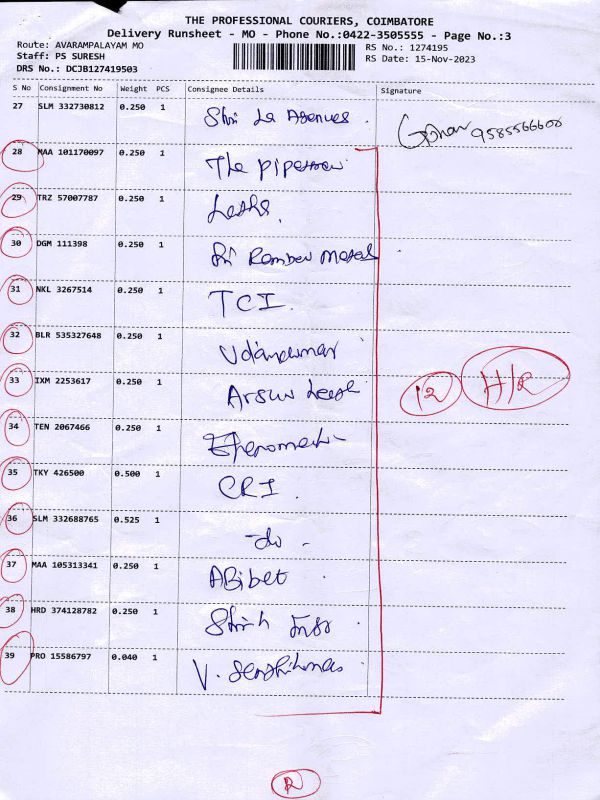 THE PROFESSIONAL COURIERS, COIMBATORE
Delivery Runsheet - MO - Phone No.:0422-3505555 - Page No.:3
Route: AVARAMPALAYAM MO
Staff: PS SURESH
DRS No.: DCJB127419503
RS No.: 1274195
RS Date: 15-Nov-2023
S No Consignment No Weight PCS Consignee Details Signature
27 SLM 332730812 0.250 1 Shri La 9585566600
28 MAA 101170097 0.250 1 The
29 TRZ 57007787 0.250 1
30 DGM 111398 0.250 1 Sri
31 NKL 3267514 0.250 1 TCI.
32 BLR 535327648 0.250 1
33 IXM 2253617 0.250 1
12 H/R
34 TEN 2067466 0.250 1
35 TKY 426500 0.500 1 CRI.
36 SLM 332688765 0.525 1 -do-
37 MAA 105313341 0.250 1 ABibet
38 HRD 374128782 0.250 1
39 PRO 15586797 0.040 1 V.
R